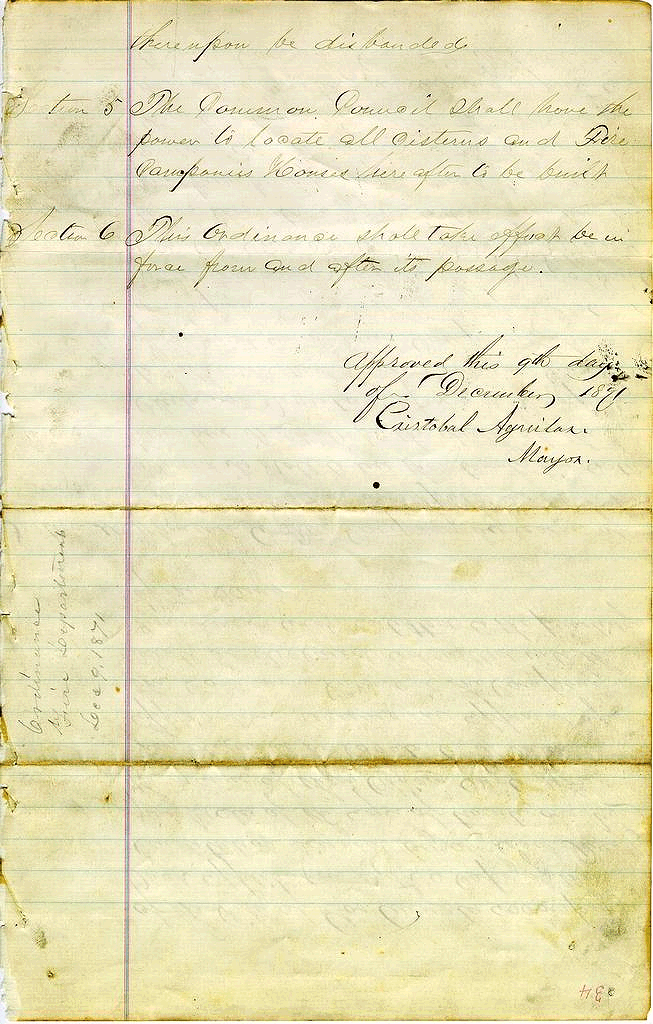 thereupon be disbanded
Section 5 The Common Council shall have the
power to locate all cisterns and Fire
Companies Houses hereafter to be built
Section 6 This Ordinance shall take effect be in
force from and after its passage.
Approved this 9th day
of December, 1871
Cristobal Aguilar.
Mayor.
Ordinance
Fire Department
Dec 9, 1871
34